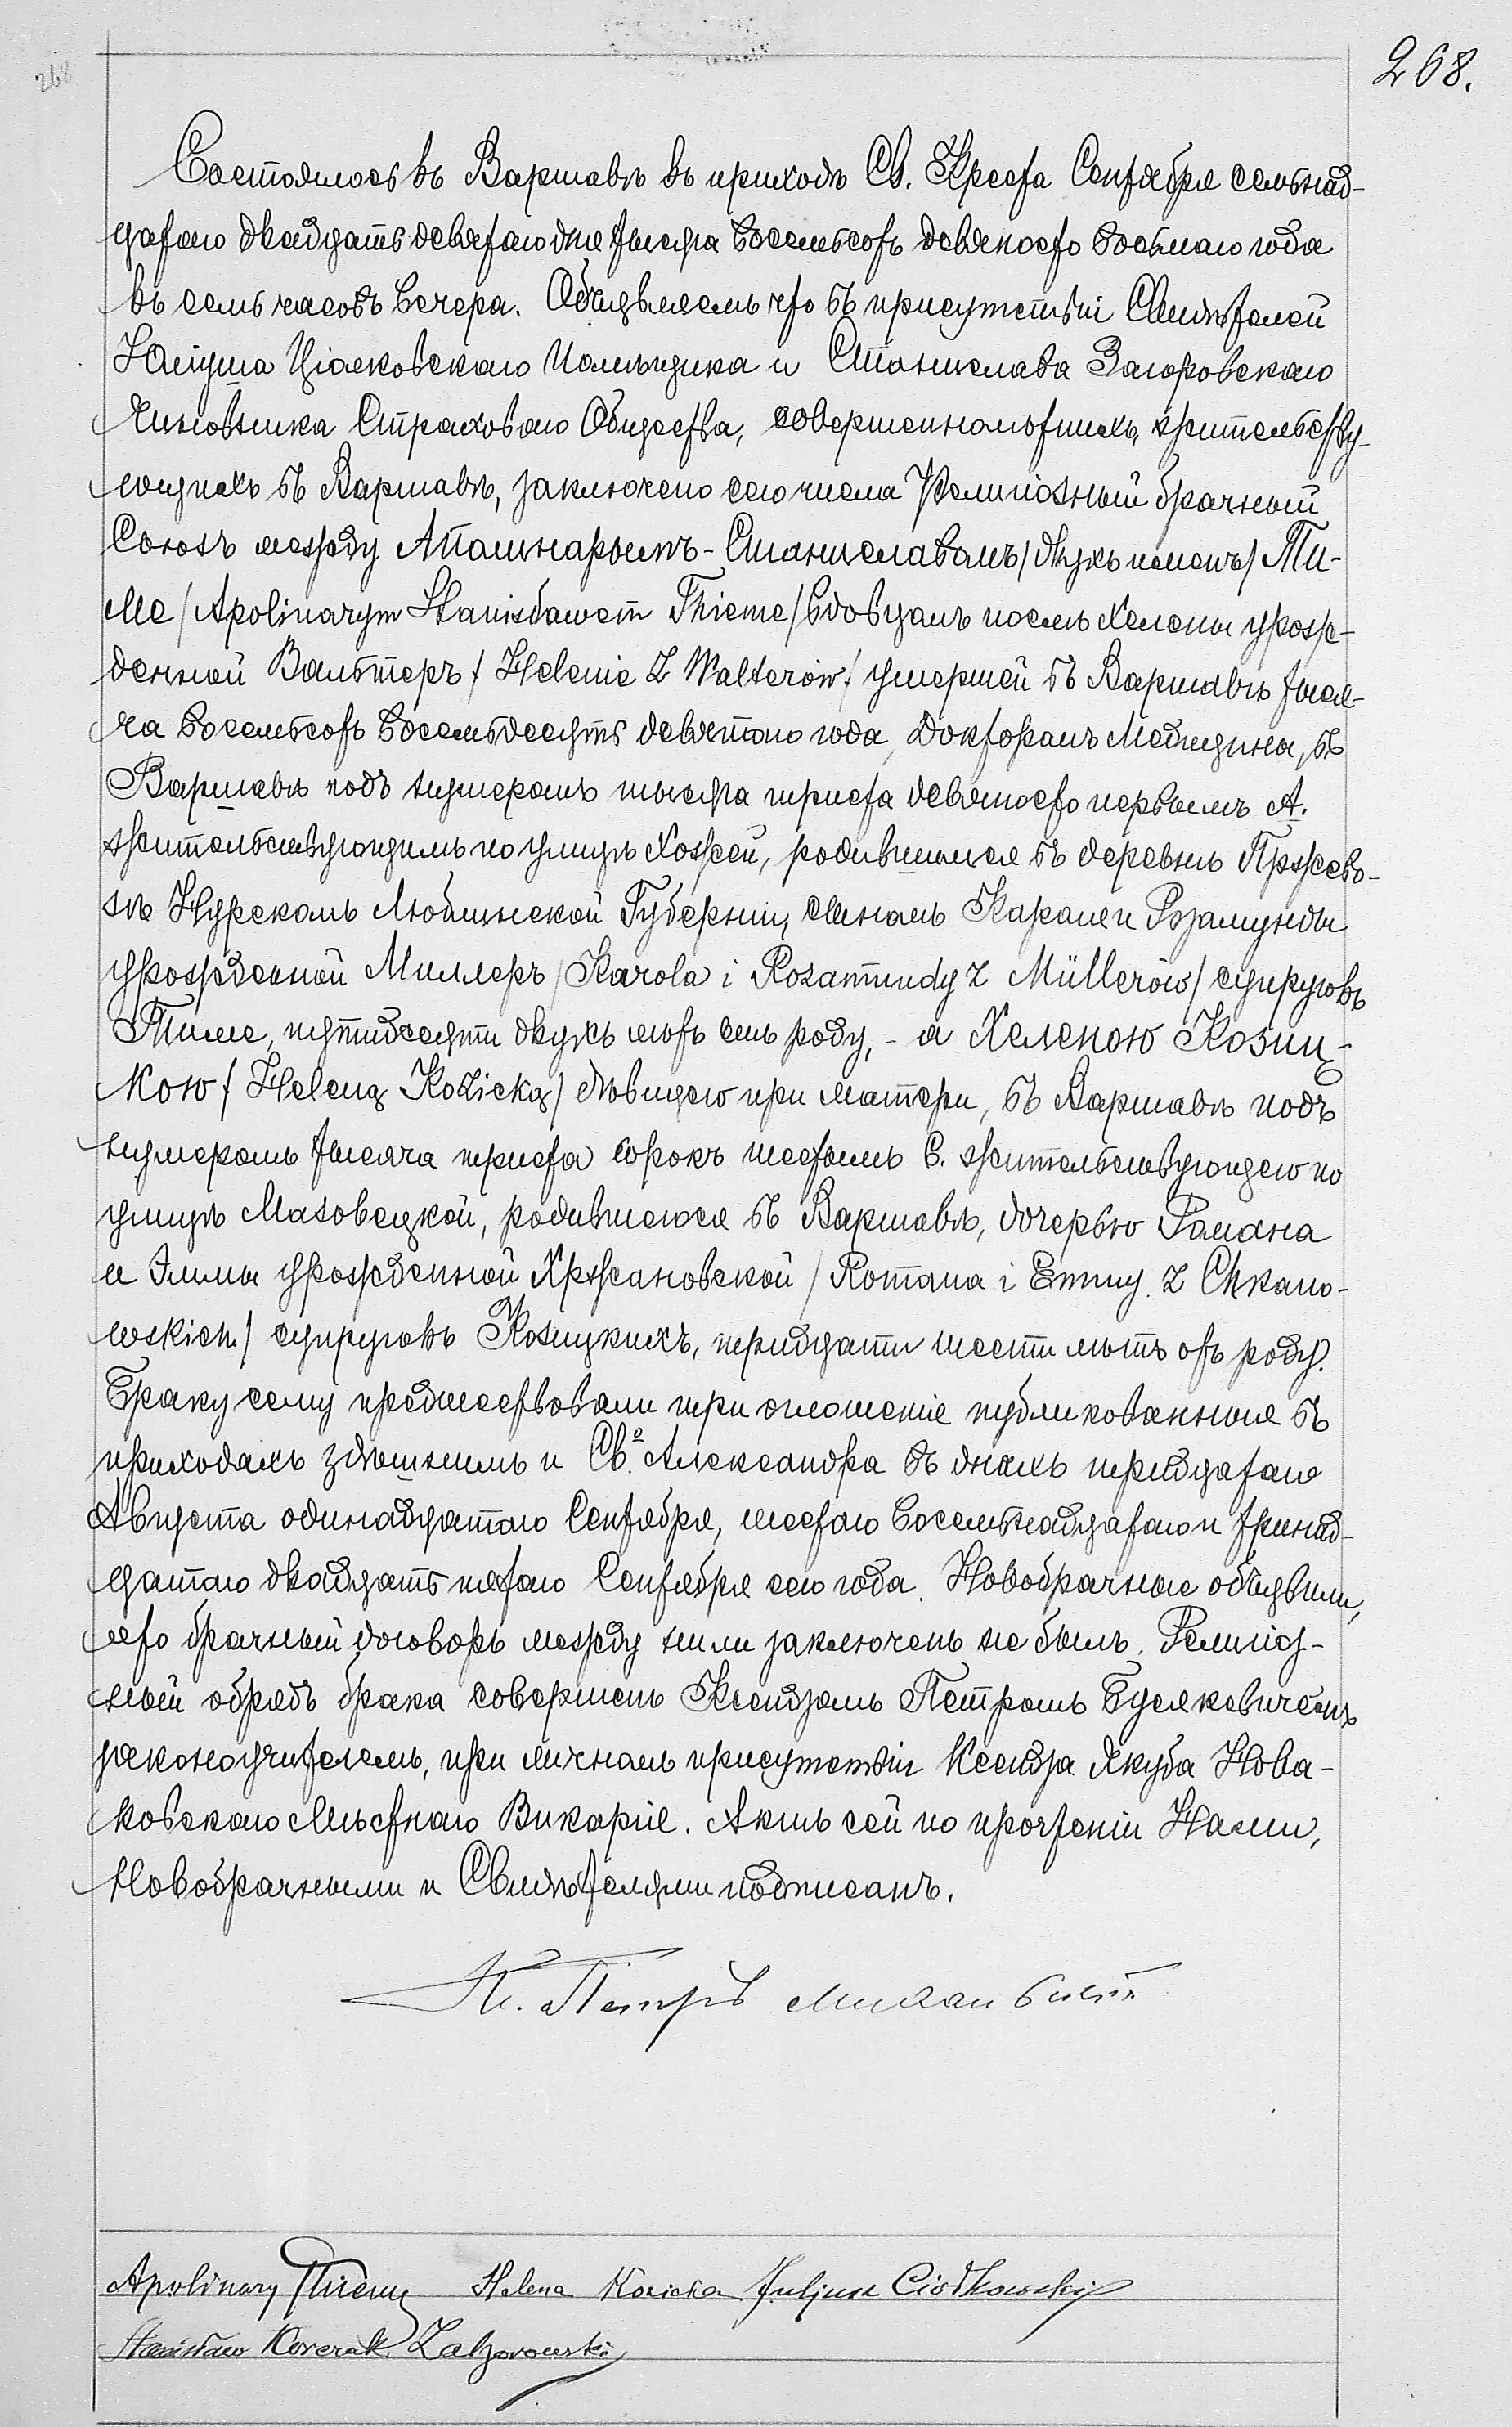 268
268.
Состоялось въ Варшавѣ въ приходѣ Св. Креста Сентября семьнад-
цатаго двадцать девятаго дня тысяча восемьсотъ девяносто восьмаго года
въ семь часовъ вечера. Объявляемъ что въ присутствіи Свидѣтелей
Юліуша Ціолковскаго Помѣщика и Станислава Загоровскаго
Чиновника Страховаго Общества, совершеннолѣтнихъ, жительству-
ющихъ въ Варшавѣ, заключенъ сего числа Религіозный брачный
Союзъ между Аполинарымъ-Станиславомъ /двухъ именъ/ Ти-
ме /Apolinarym Stanisławem Thieme/ вдовцомъ послѣ Хелены урож-
денной Вальтеръ / Helenie z Walterów / умершей въ Варшавѣ тыся-
ча восемьсотъ восемьдесятъ девятаго года, Докторомъ Медицины, въ
Варшавѣ подъ нумеромъ тысяча триста девяносто первымъ А.
жительствующимъ по улицѣ Хожей, родившимся въ деревнѣ Пржево-
зѣ Нурскомъ Люблинской Губерніи, сыномъ Кароля и Розамунды
урожденной Миллеръ /Karola i Rozamundy z Müllerów/ супруговъ
Тиме, пятидесяти двухъ лѣтъ отъ роду, - а Хеленою Козиц-
кою / Heleną Kozicką / дѣвицею при матери, въ Варшавѣ подъ
нумеромъ тысяча триста сорокъ шестымъ С. жительствующею по
улицѣ Мазовецкой, родившеюся въ Варшавѣ, дочерью Романа
и Эммы урожденной Хржановской / Romana i Emmy z Chrzano-
wskich / супруговъ Козицкихъ, тридцати шести лѣтъ отъ роду.
Браку сему предшествовали три оглашенія публикованныя въ
приходахъ здѣшнемъ и Св. Александра въ дняхъ тридцатаго
Августа одинадцатаго Сентября, шестаго восемьнадцатаго и тринад-
цатаго двадцать пятаго Сентября сего года. Новобрачные объявили,
что брачный договоръ между ними заключенъ не былъ. Религіоз-
ный обрядъ брака совершенъ Ксендзомъ Петромъ
законоучителемъ, при личномъ присутствіи Ксендза Якуба Нова-
ковскаго Мѣстнаго Викарія. Актъ сей по прочтеніи Нами,
Новобрачными и Свидѣтелями подписанъ.
Кс. Петръ
Apolinary Thieme Helena Kozicka Juljusz Ciołkowski
Stanisław Korczak Zahorowski